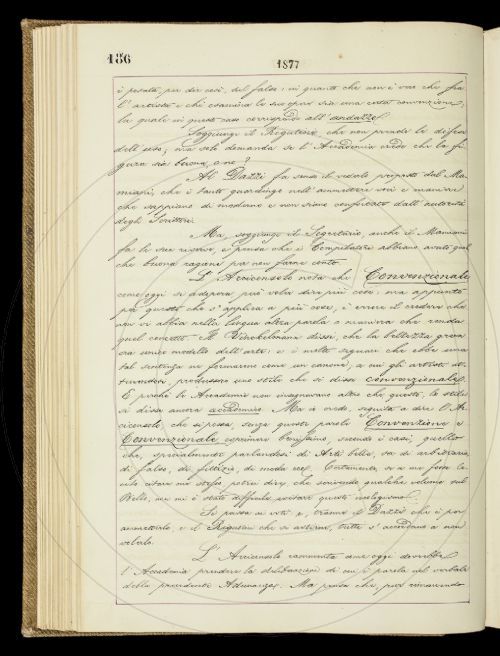 186
1877
è posata, per dir così, sul falso: in quanto che non è vero che fra
l'artista e chi esamina le sue opere sia una certa convenzione,
la quale in questo caso corrisponde all'andazzo.
Soggiunge il Segretario, che non prende la difesa
dell'uso, ma solo domanda se l'Accademia crede che la fi-
gura sia buona, o no?
Al Dazzi fa senso il vedere proposte dal Ma-
miani, che è tanto guardingo nell'ammettere voci e maniere
che sappiano di moderno e non siano confortate dall'autorità
degli Scrittori.
Ma, soggiunge il Segretario, anche il Mamiani
fa le sue riserve, e pensa che i Compilatori abbiano avuto qual
che buona ragione per non farne conto.
L'Arciconsolo nota che Convenzionale
come oggi si adopera può voler dire più cose; ma appunto
per questo che s'applica a più cose, è errore il credere che
non vi abbia nella lingua altra parola o maniera che renda
quel concetto. Il Vinckelmann disse, che la bellezza greca
era unico modello dell'arte; e i molti seguaci che ebbe una
tal sentenza ne formarono come un canone, a cui gli artisti at-
tenendosi, produssero uno stile che si disse convenzionale.
E perchè le Accademie non insegnavano altro che questo, lo stile
si disse ancora accademico. Ma si crede, seguita a dire l'Ar-
ciconsolo, che si possa, senza queste parole Convenzione e
Convenzionale esprimere benissimo, secondo i casi, quello
che, specialmente parlandosi di Arti belle, sa di arbitrario,
di falso, di fittizio, di moda ecc. Certamente, se a me fosse le-
cito citare me stesso, potrei dire che scrivendo qualche volume sul
Bello, non mi è stato difficile evitare questo neologismo.
Si passa ai voti e, tranne il Dazzi che è per
ammetterlo, e il Rigutini che si astiene, tutti s'accordano a non
volerlo.
L'Arciconsolo rammenta come oggi dovrebbe
l'Accademia prendere la deliberazione di cui è parola nel verbale
della precedente Adunanza. Ma pensa che, pur rimanendo